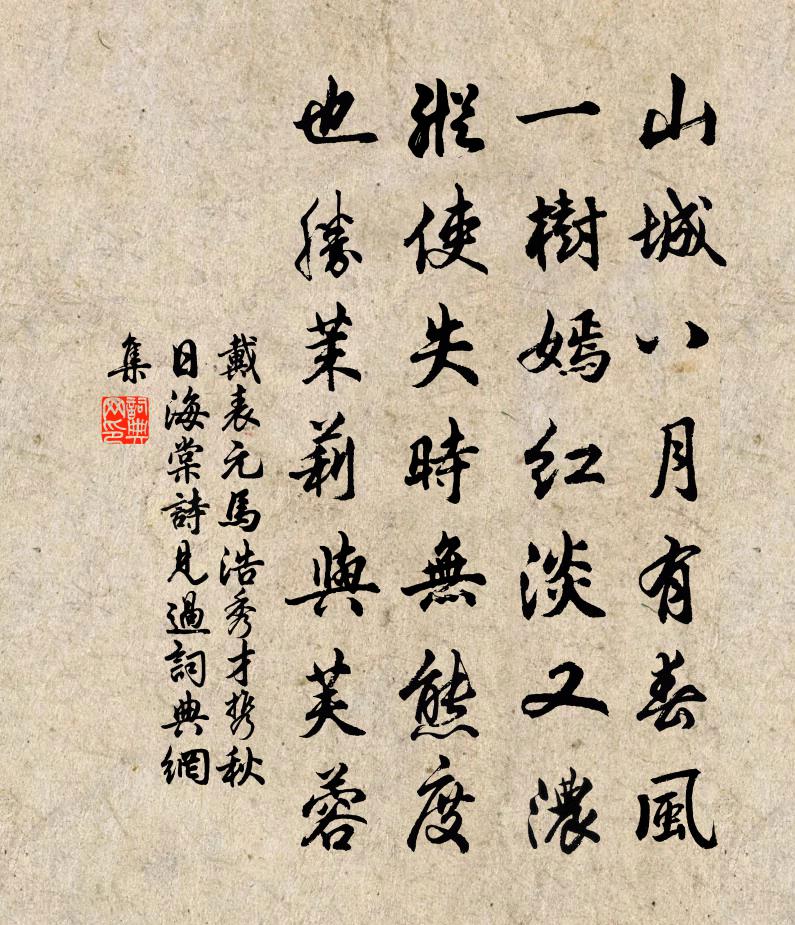 山城八月有春風
一樹嫣紅淡又濃
縱使失時無態度
也勝茉莉與芙蓉
戴表元馬浩秀才携秋
日海棠詩見過詞典網
集
詞典網印